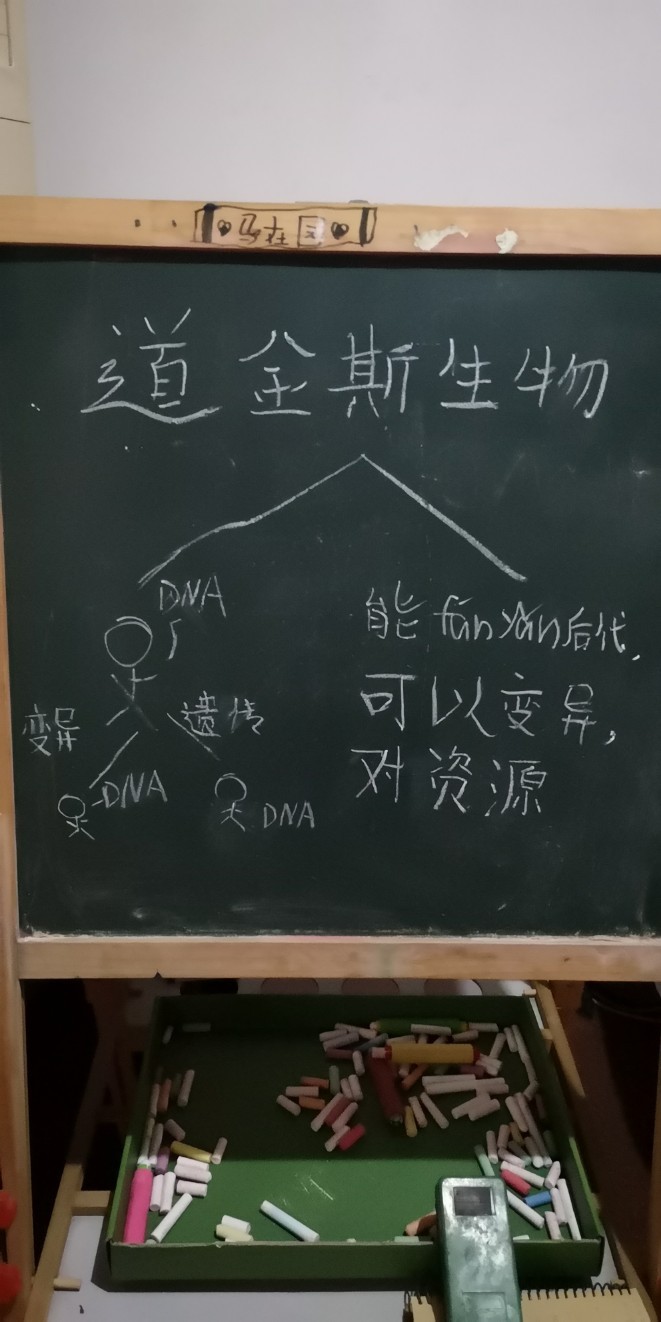 马在
道金斯生物
DNA
能fán yǎn后代,
变异
遗传
可以变异,
DNA
对资源
DNA